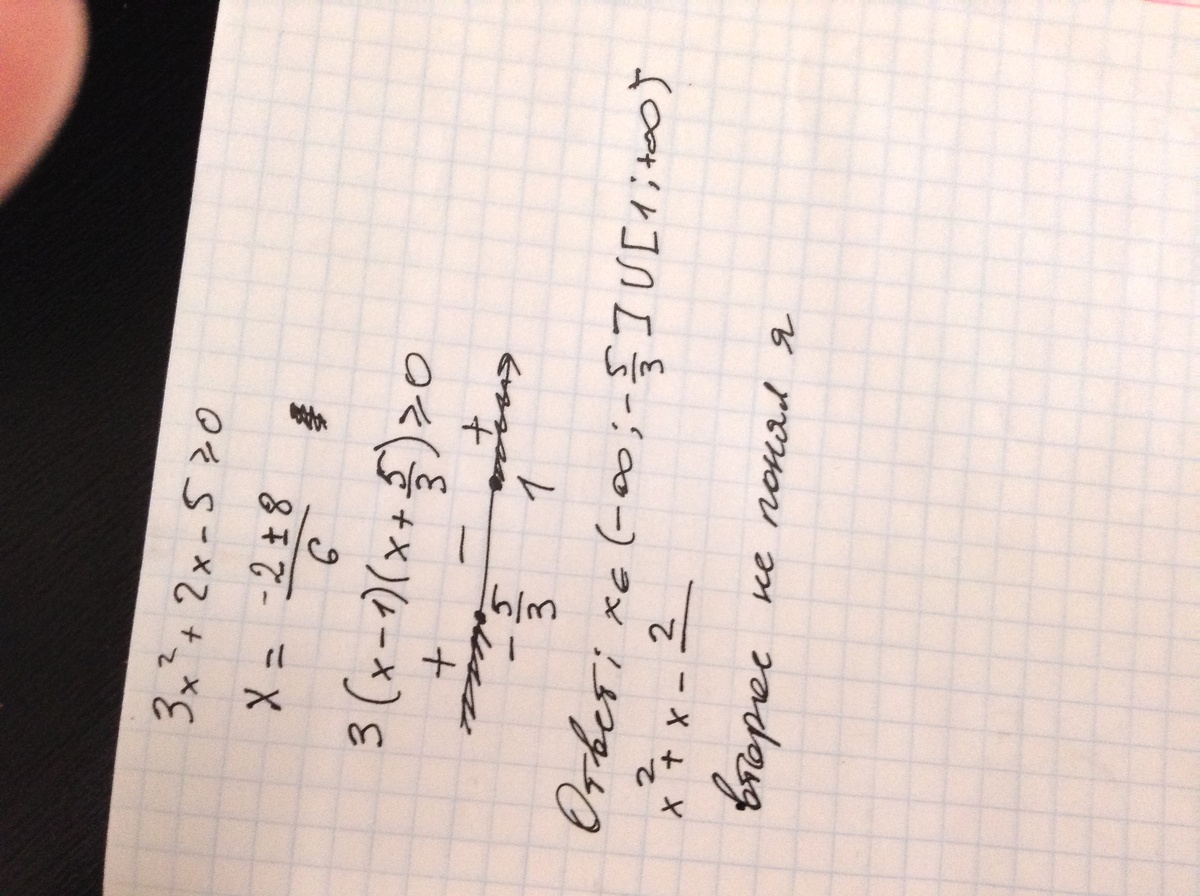 3x² + 2x - 5 ≥ 0
x = (-2 ± 8)/6
3(x - 1)(x + 5/3) ≥ 0
+ - +
-5/3 1
Ответ: x ∈ (-∞; -5/3] ∪ [1; +∞)
x² + x - 2
второе не понял я